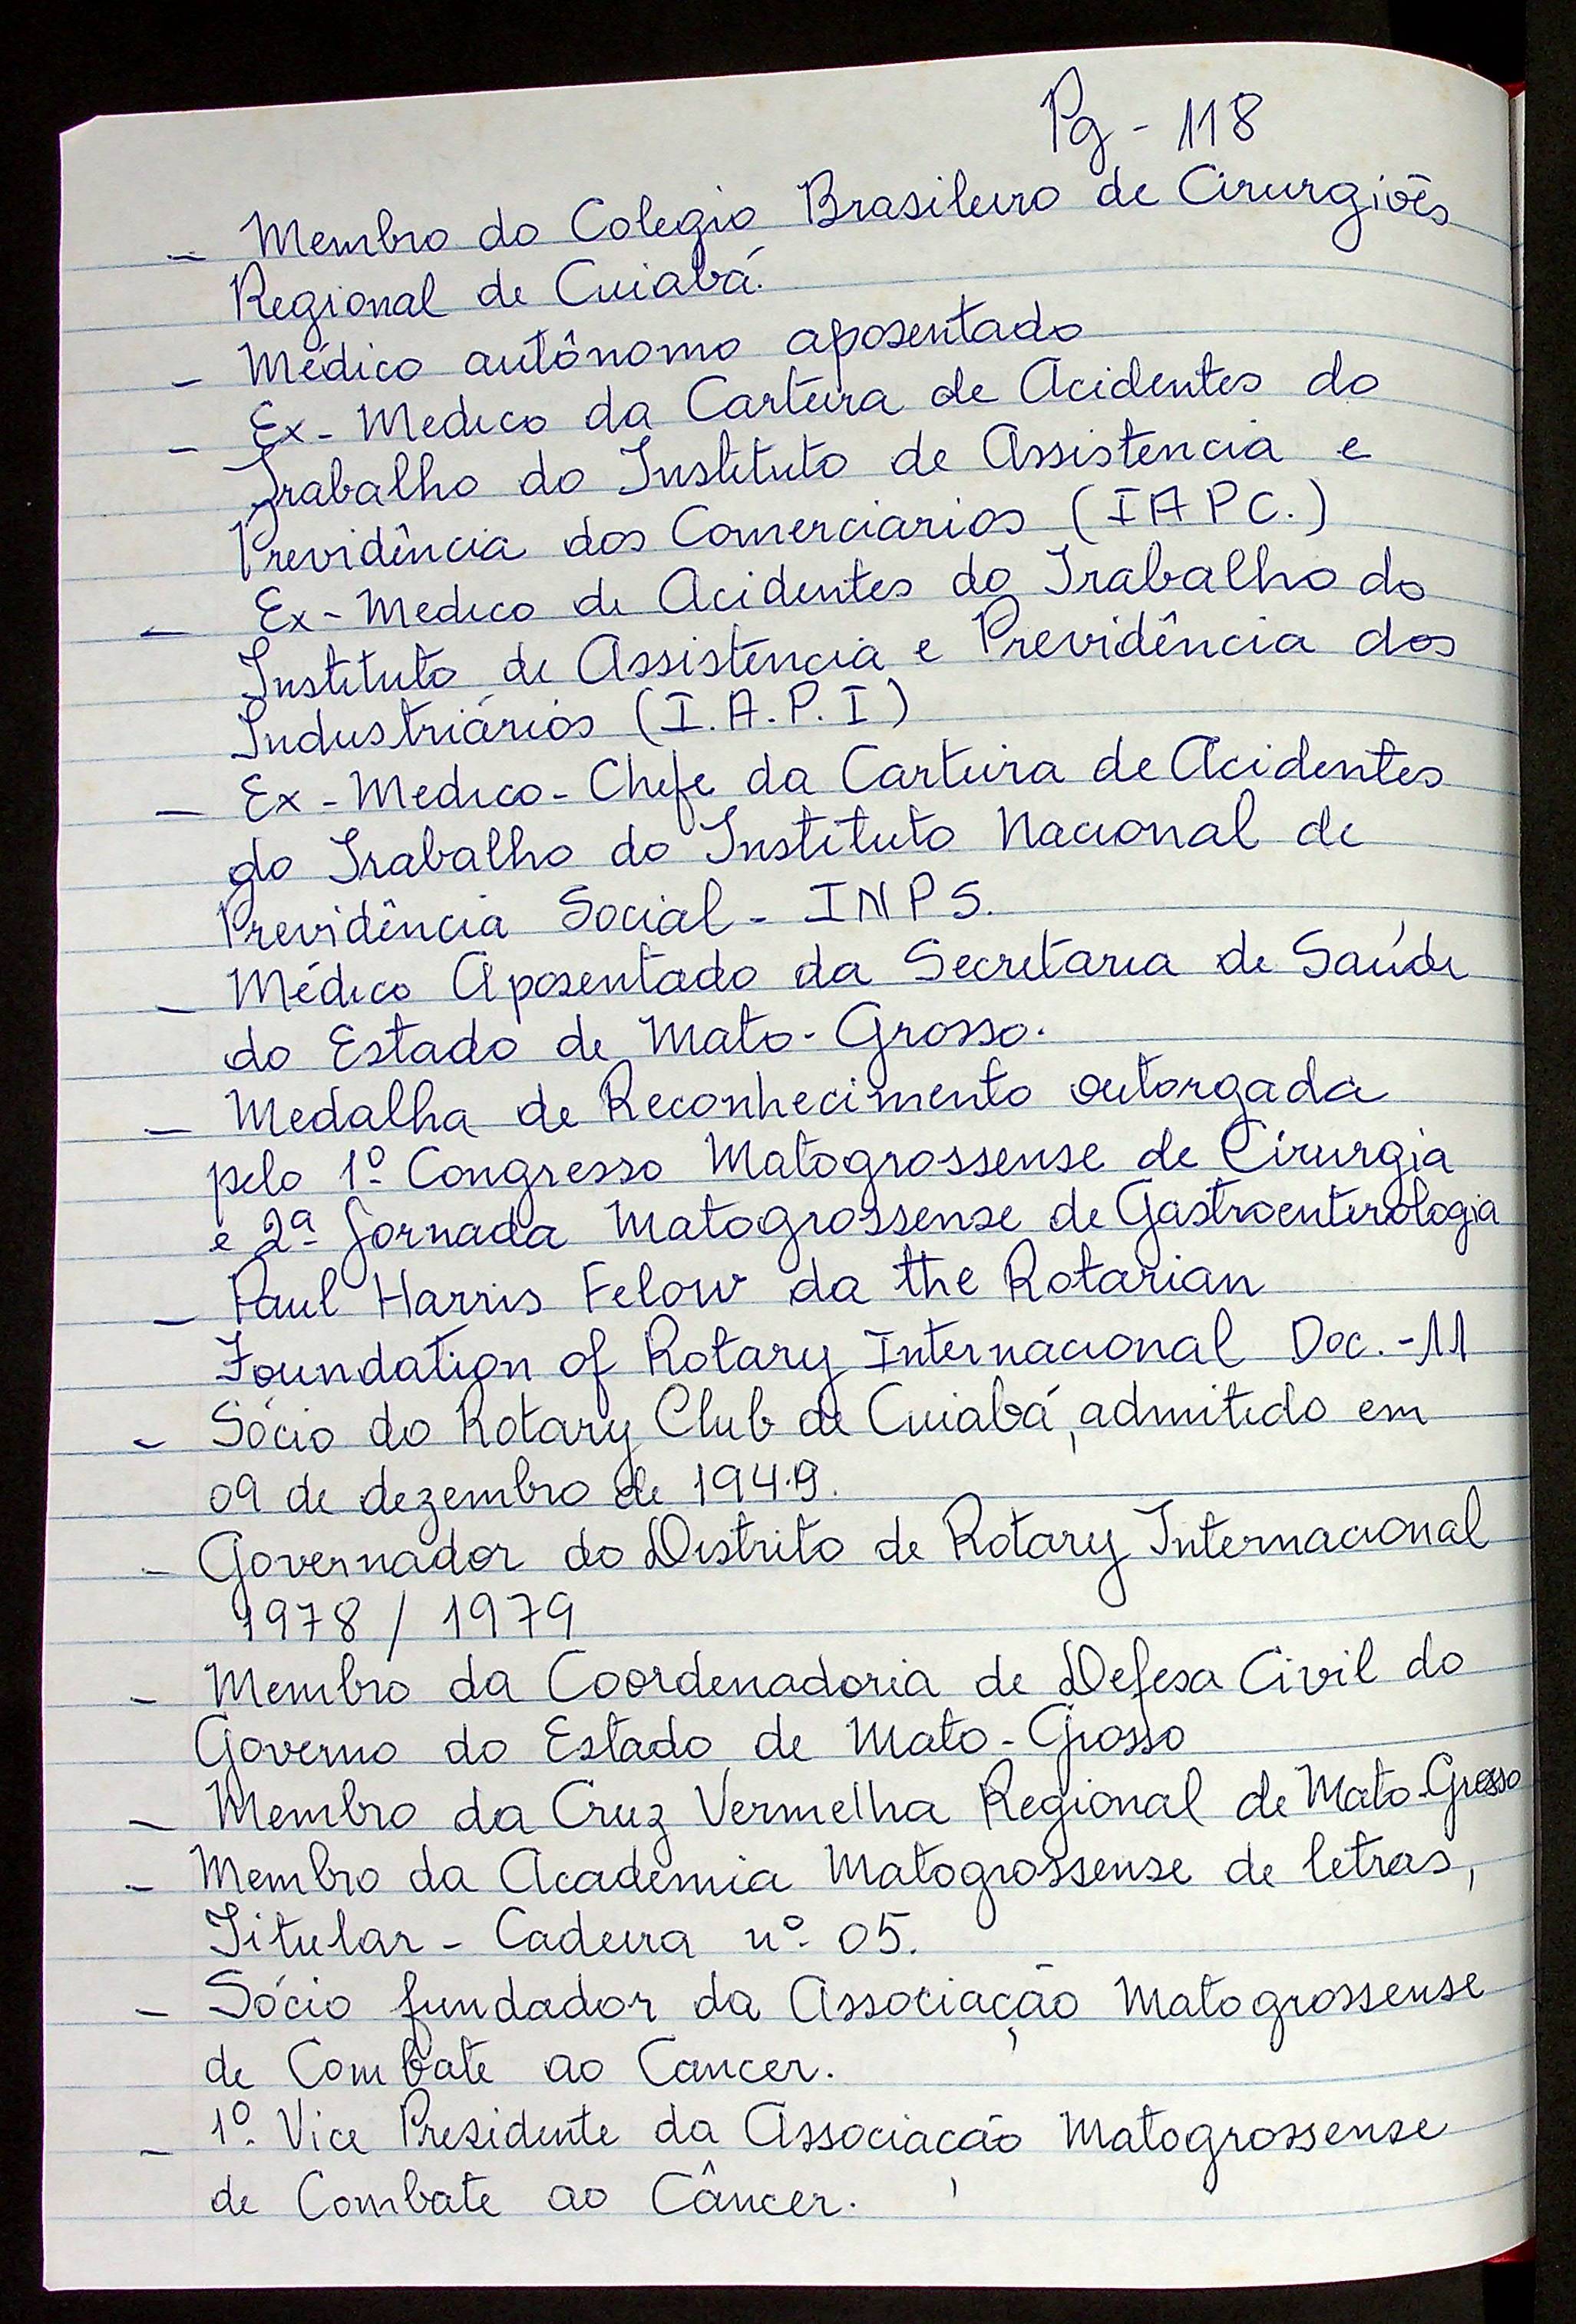 Pg - 118
- Membro do Colegio Brasileiro de Cirurgiões
Regional de Cuiabá.
- Médico autônomo aposentado
- Ex- Medico da Carteira de Acidentes do
Trabalho do Instituto de Assistencia e
Previdência dos Comerciarios (IAPC.)
- Ex- Medico de Acidentes do Trabalho do
Instituto de Assistência e Previdência dos
Industriários (I.A.P.I)
- Ex - Medico - Chefe da Carteira de Acidentes
do Trabalho do Instituto Nacional de
Previdência Social - INPS.
- Médico Aposentado da Secretaria de Saúde
do Estado de Mato - Grosso.
- Medalha de Reconhecimento outorgada
pelo 1º Congresso Matogrossense de Cirurgia
e 2ª Jornada Matogrossense de Gastroenterologia
- Paul Harris Felow da the Rotarian
Foundation of Rotary Internacional Doc. - 11
- Sócio do Rotary Club de Cuiabá, admitido em
09 de dezembro de 194.9.
- Governador do Distrito de Rotary Internacional
1978 / 1979
- Membro da Coordenadoria de Defesa Civil do
Governo do Estado de Mato - Grosso
- Membro da Cruz Vermelha Regional de Mato-Grosso
- Membro da Academia Matogrossense de letras,
Titular - Cadeira nº 05.
- Sócio fundador da Associação Matogrossense
de Combate ao Cancer.
- 1º. Vice Presidente da Associação Matogrossense
de Combate ao Câncer.